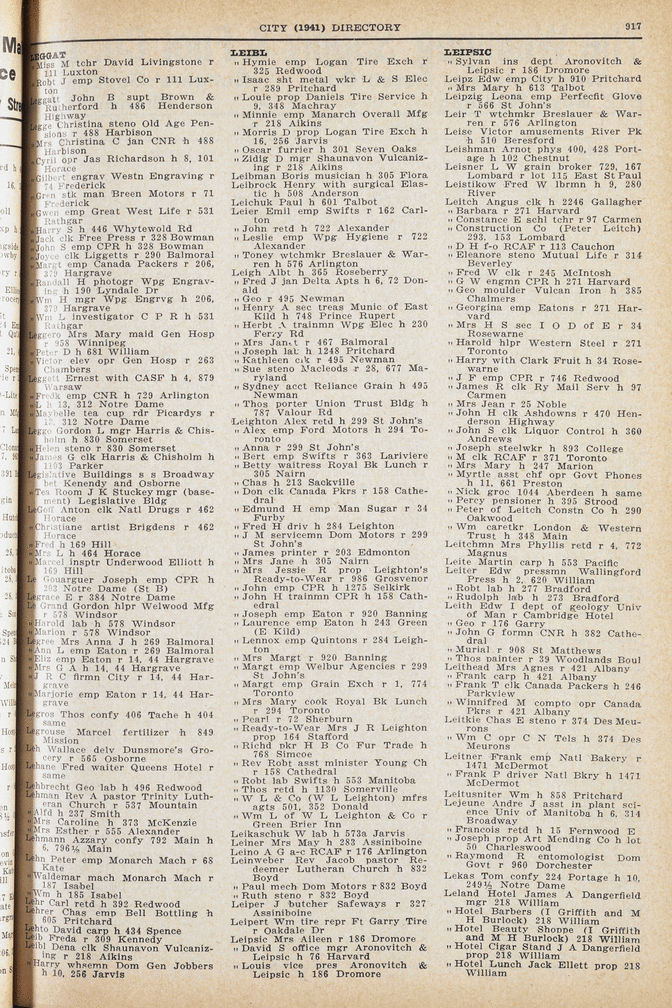 CITY (1941) DIRECTORY 917
LEGGAT
" Miss M tchr David Livingstone r
111 Luxton
" Robt J emp Stovel Co r 111 Lux-
ton
Leggatt John B supt Brown &
Rutherford h 486 Henderson
Highway
Legge Christina steno Old Age Pen-
sions r 488 Harbison
" Mrs Christina C jan CNR h 488
Harbison
" Cyril opr Jas Richardson h 8, 101
Horace
" Gilbert engrav Westn Engraving r
74 Frederick
" Gren stk man Breen Motors r 71
Frederick
" Gwen emp Great West Life r 531
Rathgar
" Harry S h 446 Whytewold Rd
" Jack clk Free Press r 328 Bowman
" John S emp CPR h 328 Bowman
" Joyce clk Liggetts r 290 Balmoral
" Margt emp Canada Packers r 206,
379 Hargrave
" Randall H photogr Wpg Engrav-
ing h 190 Lyndale Dr
" Wm H mgr Wpg Engrvg h 206,
379 Hargrave
" Wm L investigator C P R h 531
Rathgar
Leggero Mrs Mary maid Gen Hosp
r 958 Winnipeg
" Peter D h 681 William
" Victor elev opr Gen Hosp r 263
Chambers
Leggott Ernest with CASF h 4, 879
Warsaw
" Fredk emp CNR h 729 Arlington
" L h 13, 312 Notre Dame
" Maybelle tea cup rdr Picardys r
13, 312 Notre Dame
Leggo Gordon L mgr Harris & Chis-
holm h 830 Somerset
" Helen steno r 830 Somerset
" James G clk Harris & Chisholm h
1193 Parker
Legislative Buildings s s Broadway
bet Kenedy and Osborne
" Tea Room J K Stuckey mgr (base-
ment) Legislative Bldg
LeGoff Anton clk Natl Drugs r 462
Horace
" Christiane artist Brigdens r 462
Horace
" Fred h 169 Hill
" Mrs L h 464 Horace
" Marcel insptr Underwood Elliott h
169 Hill
Le Gouarguer Joseph emp CPR h
203 Notre Dame (St B)
Legrace E r 384 Notre Dame
Le Grand Gordon hlpr Welwood Mfg
r 578 Windsor
" Harold lab h 578 Windsor
" Marion r 578 Windsor
Legree Mrs Anna J h 269 Balmoral
" Ann L emp Eaton r 269 Balmoral
" Eliz emp Eaton r 14, 44 Hargrave
" Mrs G A h 14, 44 Hargrave
" J R C firmn City r 14, 44 Har-
grave
" Marjorie emp Eaton r 14, 44 Har-
grave
Legros Thos confy 406 Tache h 404
same
Legrouse Marcel fertilizer h 849
Mission
Leh Wallace delv Dunsmore's Gro-
cery r 565 Osborne
Lehane Fred waiter Queens Hotel r
same
Lehbrecht Geo lab h 496 Redwood
Lehman Rev A pastor Trinity Luth-
eran Church r 537 Mountain
" Alfd h 237 Smith
" Mrs Caroline h 373 McKenzie
" Mrs Esther r 555 Alexander
Lehmann Azzary confy 792 Main h
6, 796½ Main
Lehn Peter emp Monarch Mach r 68
Kate
" Waldemar mach Monarch Mach r
187 Isabel
" Wm h 185 Isabel
Lehr Carl retd h 392 Redwood
Lehrer Chas emp Bell Bottling h
605 Pritchard
Lehto David carp h 434 Spence
Leib Freda r 309 Kennedy
Leibl Dena clk Shaunavon Vulcaniz-
ing r 218 Aikins
" Harry whsemn Dom Gen Jobbers
h 10, 256 Jarvis
LEIBL
" Hymie emp Logan Tire Exch r
325 Redwood
" Isaac sht metal wkr L & S Elec
r 289 Pritchard
" Louie prop Daniels Tire Service h
9, 348 Machray
" Minnie emp Manarch Overall Mfg
r 218 Aikins
" Morris D prop Logan Tire Exch h
16, 256 Jarvis
" Oscar furrier h 301 Seven Oaks
" Zidig D mgr Shaunavon Vulcaniz-
ing r 218 Aikins
Leibman Boris musician h 305 Flora
Leibrock Henry with surgical Elas-
tic h 508 Anderson
Leichuk Paul h 601 Talbot
Leier Emil emp Swifts r 162 Carl-
ton
" John retd h 722 Alexander
" Leslie emp Wpg Hygiene r 722
Alexander
" Toney wtchmkr Breslauer & War-
ren h 576 Arlington
Leigh Albt h 365 Roseberry
" Fred J jan Delta Apts h 6, 72 Don-
ald
" Geo r 495 Newman
" Henry A sec treas Munic of East
Kild h 748 Prince Rupert
" Herbt A trainmn Wpg Elec h 230
Ferry Rd
" Mrs Janet r 467 Balmoral
" Joseph lab h 1248 Pritchard
" Kathleen clk r 495 Newman
" Sue steno Macleods r 28, 677 Ma-
ryland
" Sydney acct Reliance Grain h 495
Newman
" Thos porter Union Trust Bldg h
787 Valour Rd
Leighton Alex retd h 299 St John's
" Alex emp Ford Motors h 294 To-
ronto
" Anna r 299 St John's
" Bert emp Swifts r 363 Lariviere
" Betty waitress Royal Bk Lunch r
305 Nairn
" Chas h 213 Sackville
" Don clk Canada Pkrs r 158 Cathe-
dral
" Edmund H emp Man Sugar r 34
Furby
" Fred H driv h 284 Leighton
" J M servicemn Dom Motors r 299
St John's
" James printer r 203 Edmonton
" Mrs Jane h 305 Nairn
" Mrs Jessie R prop Leighton's
Ready-to-Wear r 986 Grosvenor
" John emp CPR h 1275 Selkirk
" John H trainmn CPR h 158 Cath-
edral
" Joseph emp Eaton r 920 Banning
" Laurence emp Eaton h 243 Green
(E Kild)
" Lennox emp Quintons r 284 Leigh-
ton
" Mrs Margt r 920 Banning
" Margt emp Welbur Agencies r 299
St John's
" Margt emp Grain Exch r 1, 774
Toronto
" Mrs Mary cook Royal Bk Lunch
r 294 Toronto
" Pearl r 72 Sherburn
" Ready-to-Wear Mrs J R Leighton
prop 164 Stafford
" Richd pkr H B Co Fur Trade h
768 Simcoe
" Rev Robt asst minister Young Ch
r 158 Cathedral
" Robt lab Swifts h 553 Manitoba
" Thos retd h 1130 Somerville
" W L & Co (W L Leighton) mfrs
agts 501, 352 Donald
" Wm L of W L Leighton & Co r
Green Brier Inn
Leikaschuk W lab h 573a Jarvis
Leiner Mrs May h 283 Assiniboine
Leino A G a-c RCAF r 176 Arlington
Leinweber Rev Jacob pastor Re-
deemer Lutheran Church h 832
Boyd
" Paul mech Dom Motors r 832 Boyd
" Ruth steno r 832 Boyd
Leiper J butcher Safeways r 327
Assiniboine
Leipert Wm tire repr Ft Garry Tire
r Oakdale Dr
Leipsic Mrs Aileen r 186 Dromore
" David S office mgr Aronovitch &
Leipsic h 76 Harvard
" Louis vice pres Aronovitch &
Leipsic h 186 Dromore
LEIPSIC
" Sylvan ins dept Aronovitch &
Leipsic r 186 Dromore
Leipz Edw emp City h 910 Pritchard
" Mrs Mary h 613 Talbot
Leipzig Leona emp Perfecfit Glove
r 566 St John's
Leir T wtchmkr Breslauer & War-
ren r 576 Arlington
Leise Victor amusements River Pk
h 510 Beresford
Leishman Arnot phys 400, 428 Port-
age h 102 Chestnut
Leisner L W grain broker 729, 167
Lombard r lot 115 East St Paul
Leistikow Fred W lbrmn h 9, 280
River
Leitch Angus clk h 2246 Gallagher
" Barbara r 271 Harvard
" Constance E schl tchr r 97 Carmen
" Construction Co (Peter Leitch)
293, 153 Lombard
" D H f-o RCAF r 113 Cauchon
" Eleanore steno Mutual Life r 314
Beverley
" Fred W clk r 245 McIntosh
" G W engmn CPR h 271 Harvard
" Geo moulder Vulcan Iron h 385
Chalmers
" Georgina emp Eatons r 271 Har-
vard
" Mrs H S sec I O D of E r 34
Rosewarne
" Harold hlpr Western Steel r 271
Toronto
" Harry with Clark Fruit h 34 Rose-
warne
" J F emp CPR r 746 Redwood
" James R clk Ry Mail Serv h 97
Carmen
" Mrs Jean r 25 Noble
" John H clk Ashdowns r 470 Hen-
derson Highway
" John S clk Liquor Control h 360
Andrews
" Joseph steelwkr h 893 College
" M clk RCAP r 371 Toronto
" Mrs Mary h 247 Marion
" Myrtle asst chf opr Govt Phones
h 11, 661 Preston
" Nick groc 1044 Aberdeen h same
" Percy pensioner h 395 Strood
" Peter of Leitch Constn Co h 290
Oakwood
" Wm caretkr London & Western
Trust h 348 Main
Leitchmn Mrs Phyllis retd r 4, 772
Magnus
Leite Martin carp h 553 Pacific
Leiter Edw pressmn Wallingford
Press h 2, 620 William
" Robt lab h 277 Bradford
" Rudolph lab h 273 Bradford
Leith Edw I dept of geology Univ
of Man r Cambridge Hotel
" Geo r 176 Garry
" John G formn CNR h 382 Cathe-
dral
" Murial r 908 St Matthews
" Thos painter r 39 Woodlands Boul
Leithead Mrs Agnes r 421 Albany
" Frank carp h 421 Albany
" Frank T clk Canada Packers h 246
Parkview
" Winnifred M compto opr Canada
Pkrs r 421 Albany
Leitkie Chas E steno r 374 Des Meu-
rons
" Wm C opr C N Tels h 374 Des
Meurons
Leitner Frank emp Natl Bakery r
1471 McDermot
" Frank P driver Natl Bkry h 1471
McDermot
Leitusniter Wm h 858 Pritchard
Lejeune Andre J asst in plant sci-
ence Univ of Manitoba h 6, 314
Broadway
" Francois retd h 15 Fernwood E
" Joseph prop Art Mending Co h lot
50 Charleswood
" Raymond R entomologist Dom
Govt r 960 Dorchester
Lekas Tom confy 224 Portage h 10,
249½ Notre Dame
Leland Hotel James A Dangerfield
mgr 218 William
" Hotel Barbers (I Griffith and M
H Burlock) 218 William
" Hotel Beauty Shoppe (I Griffith
and M H Burlock) 218 William
" Hotel Cigar Stand J A Dangerfield
prop 218 William
" Hotel Lunch Jack Ellett prop 218
William